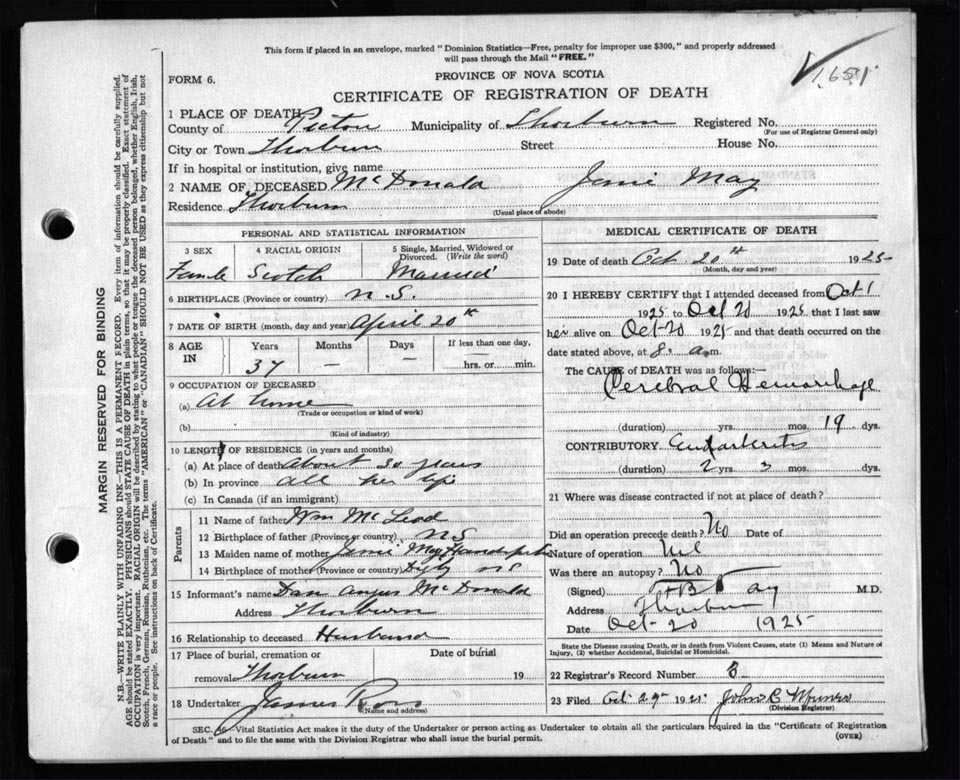 This form if placed in an envelope, marked "Dominion Statistics—Free, penalty for improper use $300," and properly addressed
will pass through the Mail "FREE."
1651
FORM 6.
PROVINCE OF NOVA SCOTIA
CERTIFICATE OF REGISTRATION OF DEATH
1 PLACE OF DEATH
County of Pictou Municipality of Thorburn Registered No.
(For use of Registrar General only)
City or Town Thorburn Street House No.
If in hospital or institution, give name
2 NAME OF DECEASED McDonald Janie May
Residence Thorburn
(Usual place of abode)
PERSONAL AND STATISTICAL INFORMATION
3 SEX 4 RACIAL ORIGIN 5 Single, Married, Widowed or Divorced. (Write the word)
Female Scotch Married
6 BIRTHPLACE (Province or country) N.S.
7 DATE OF BIRTH (month, day and year) April 20th
8 AGE IN Years Months Days If less than one day,
37 — — hrs. or min.
9 OCCUPATION OF DECEASED
(a) At home
(Trade or occupation or kind of work)
(b)
(Kind of industry)
10 LENGTH OF RESIDENCE (in years and months)
(a) At place of death About 30 years
(b) In province all her life
(c) In Canada (if an immigrant)
Parents
11 Name of father Wm McLeod
12 Birthplace of father (Province or country) N.S
13 Maiden name of mother Janie May
14 Birthplace of mother (Province or country) Digby N.S
15 Informant's name Dan Angus McDonald
Address Thorburn
16 Relationship to deceased Husband
17 Place of burial, cremation or Date of burial
removal Thorburn 19
18 Undertaker James Ross
(Name and address)
MEDICAL CERTIFICATE OF DEATH
19 Date of death Oct 20th 1925
(Month, day and year)
20 I HEREBY CERTIFY that I attended deceased from Oct 1
1925 to Oct 20 1925 that I last saw
her alive on Oct-20 1925 and that death occurred on
date stated above, at 8. a.m.
The CAUSE of DEATH was as follows:—
Cerebral Hemorrhage
(duration) yrs. mos. 19 dys.
CONTRIBUTORY Endarteritis
(duration) 2 yrs. 3 mos. dys.
21 Where was disease contracted if not at place of death?
Did an operation precede death? No Date of
Nature of operation Nil
Was there an autopsy? No
(Signed) M.D.
Address Thorburn
Date Oct-20 1925
State the Disease causing Death, or in death from Violent Causes, state (1) Means and Nature of
Injury, (2) whether Accidental, Suicidal or Homicidal.
22 Registrar's Record Number 3
23 Filed Oct 29 1925 John C Munro
(Division Registrar)
SEC. 26—Vital Statistics Act makes it the duty of the Undertaker or person acting as Undertaker to obtain all the particulars required in the "Certificate of Registration
of Death" and to file the same with the Division Registrar who shall issue the burial permit.
(OVER)
MARGIN RESERVED FOR BINDING
N.B.—WRITE PLAINLY WITH UNFADING INK—THIS IS A PERMANENT RECORD. Every item of information should be carefully supplied.
AGE should be stated EXACTLY. PHYSICIANS should STATE CAUSE OF DEATH in plain terms, so that it may be properly classified. Exact statement of
OCCUPATION is very important. RACIAL ORIGIN will be described by stating to what people or tongue the deceased person belonged, whether English, Irish,
Scotch, French, German, Russian, Ruthenian, etc. The terms "AMERICAN" or "CANADIAN" SHOULD NOT BE USED as they express citizenship but not
a race or people. See instructions on back of Certificate.